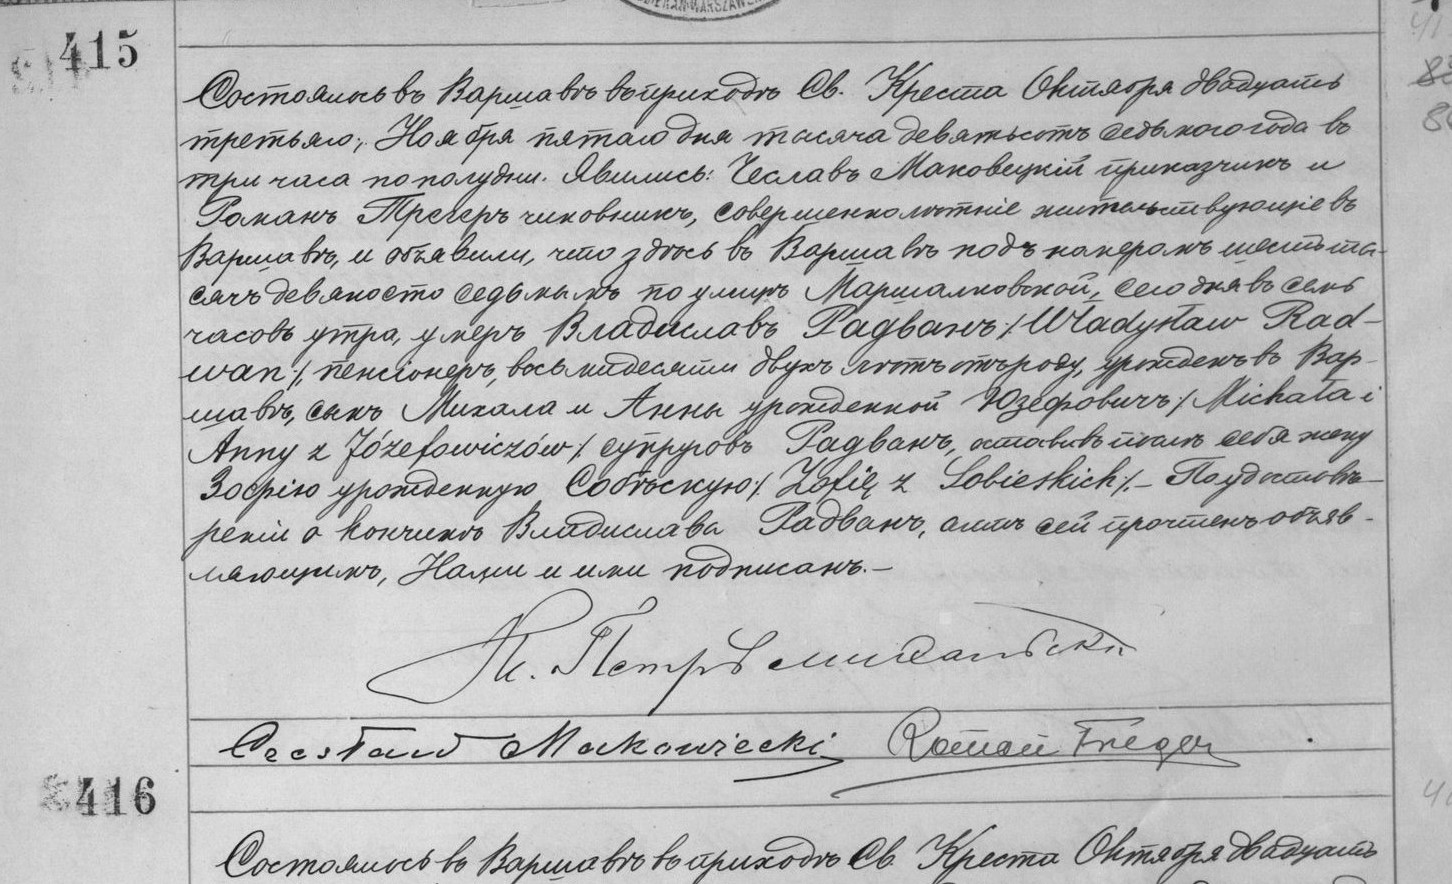 415
Состоялось въ Варшавѣ въ приходѣ Св. Креста Октября двадцать
третьяго, Ноября пятаго дня тысяча девятьсотъ седьмого года въ
три часа по полудни. Явились: Чеславъ Маковецкій приказчикъ и
Романъ Трегеръ чиновникъ, совершеннолѣтніе жительствующіе въ
Варшавѣ, и объявили, что здѣсь въ Варшавѣ подъ номеромъ шесть ты-
сячъ девяносто седьмымъ по улицѣ Маршалковской, сего дня въ семь
часовъ утра, умеръ Владиславъ Радванъ /Władysław Rad-
wan/, пенсіонеръ, восьмидесяти двухъ лѣтъ отъ роду, урожденъ въ Вар-
шавѣ, сынъ Михала и Анны урожденной Юзефовичъ /Michała i
Anny z Józefowiczów/ супруговъ Радванъ, оставивъ послѣ себя жену
Зофію урожденную Собѣскую /Zofię z Sobieskich/. – По удостовѣ-
реніи о кончинѣ Владислава Радванъ, актъ сей прочтенъ объяв-
ляющимъ, Нами и ими подписанъ. –
Czesław Makowiecki Roman Treger
416
Состоялось въ Варшавѣ въ приходѣ Св. Креста Октября двадцать